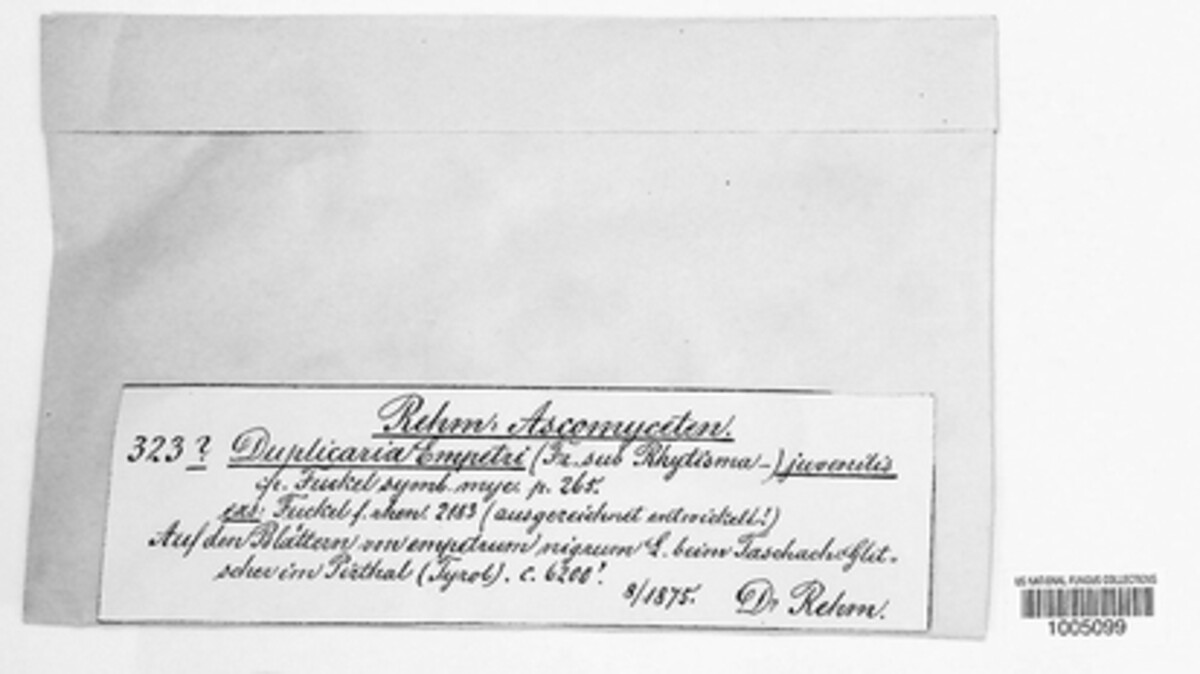 Rehm, Ascomyceten.
323 ? Duplicaria Empetri (Fr. sub Rhytisma –) juvenilis
cfr. Fuckel symb. myc. p. 265.
exs: Fuckel f. rhen. 2183 (ausgezeichnet entwickelt!)
Auf den Blättern von empetrum nigrum L. beim Taschach-Glet-
scher im Pizthal (Tyrol). c. 6200'.
8/1875. Dr Rehm.
US NATIONAL FUNGUS COLLECTIONS
1005099